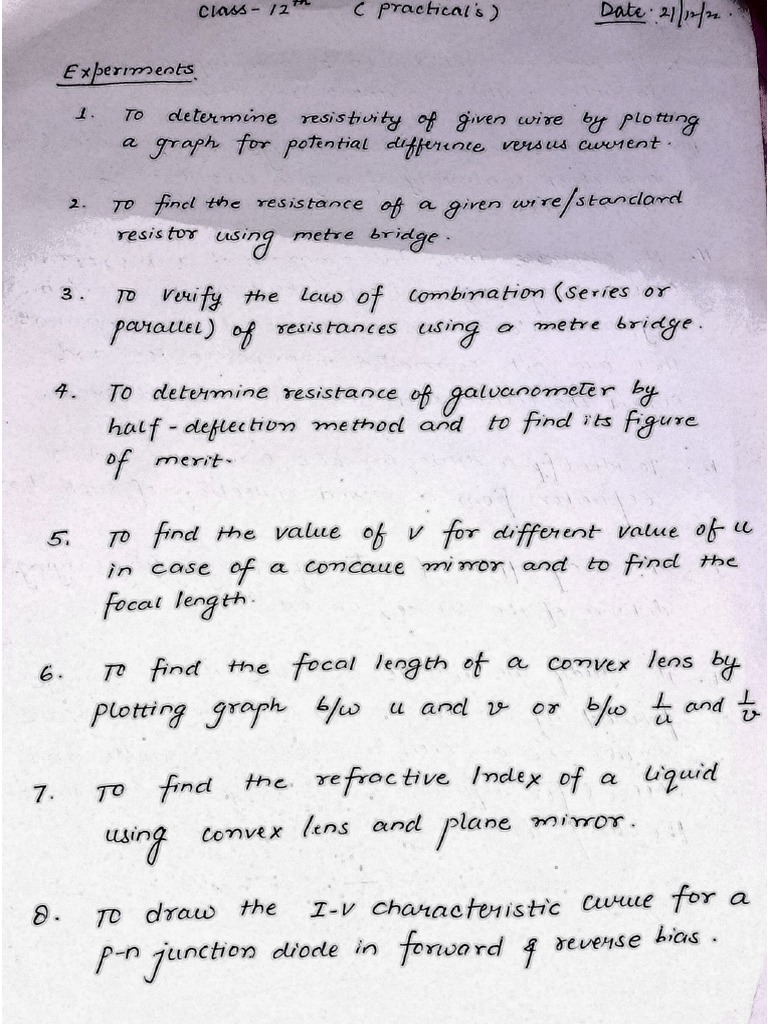 Class - 12th ( practical's ) Date: 21/12/22.
Experiments.
1. To determine resistivity of given wire by plotting
a graph for potential difference versus current.
2. To find the resistance of a given wire/standard
resistor using metre bridge.
3. To verify the law of combination (series or
parallel) of resistances using a metre bridge.
4. To determine resistance of galvanometer by
half-deflection method and to find its figure
of merit.
5. To find the value of v for different value of u
in case of a concave mirror and to find the
focal length.
6. To find the focal length of a convex lens by
plotting graph b/w u and v or b/w 1/u and 1/v
7. To find the refractive Index of a liquid
using convex lens and plane mirror.
8. To draw the I-V characteristic curve for a
p-n junction diode in forward & reverse bias.